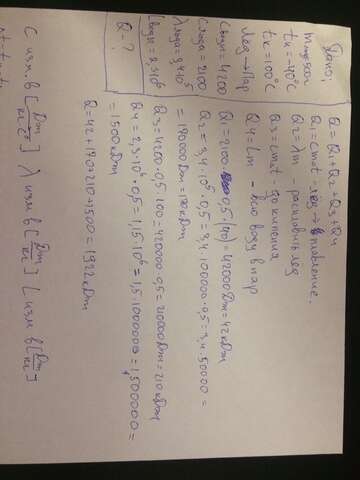 Дано:
m=500г
tн=-40°C
tк=100°C
Лёд → Пар
Cводы=4200
Cльда=2100
λльда=3,4·10⁵
Lводы=2,3·10⁶
Q-?
Q=Q1+Q2+Q3+Q4
Q1=cmΔt - лёд → плавление
Q2=λm - расплавить лёд
Q3=cmΔt - до кипения
Q4=Lm - всю воду в пар
Q1=2100·0,5·|40|=42000Дж=42кДж
Q2=3,4·10⁵·0,5=3,4·100000·0,5=3,4·50000=
=170000Дж=170кДж
Q3=4200·0,5·100=420000·0,5=210000Дж=210кДж
Q4=2,3·10⁶·0,5=1,15·10⁶=1,5·1000000=1500000=
=1500кДж
Q=42+170+210+1500=1922кДж
C изм. в [Дж/кг·°C] λ изм в [Дж/кг] L изм в [Дж/кг]